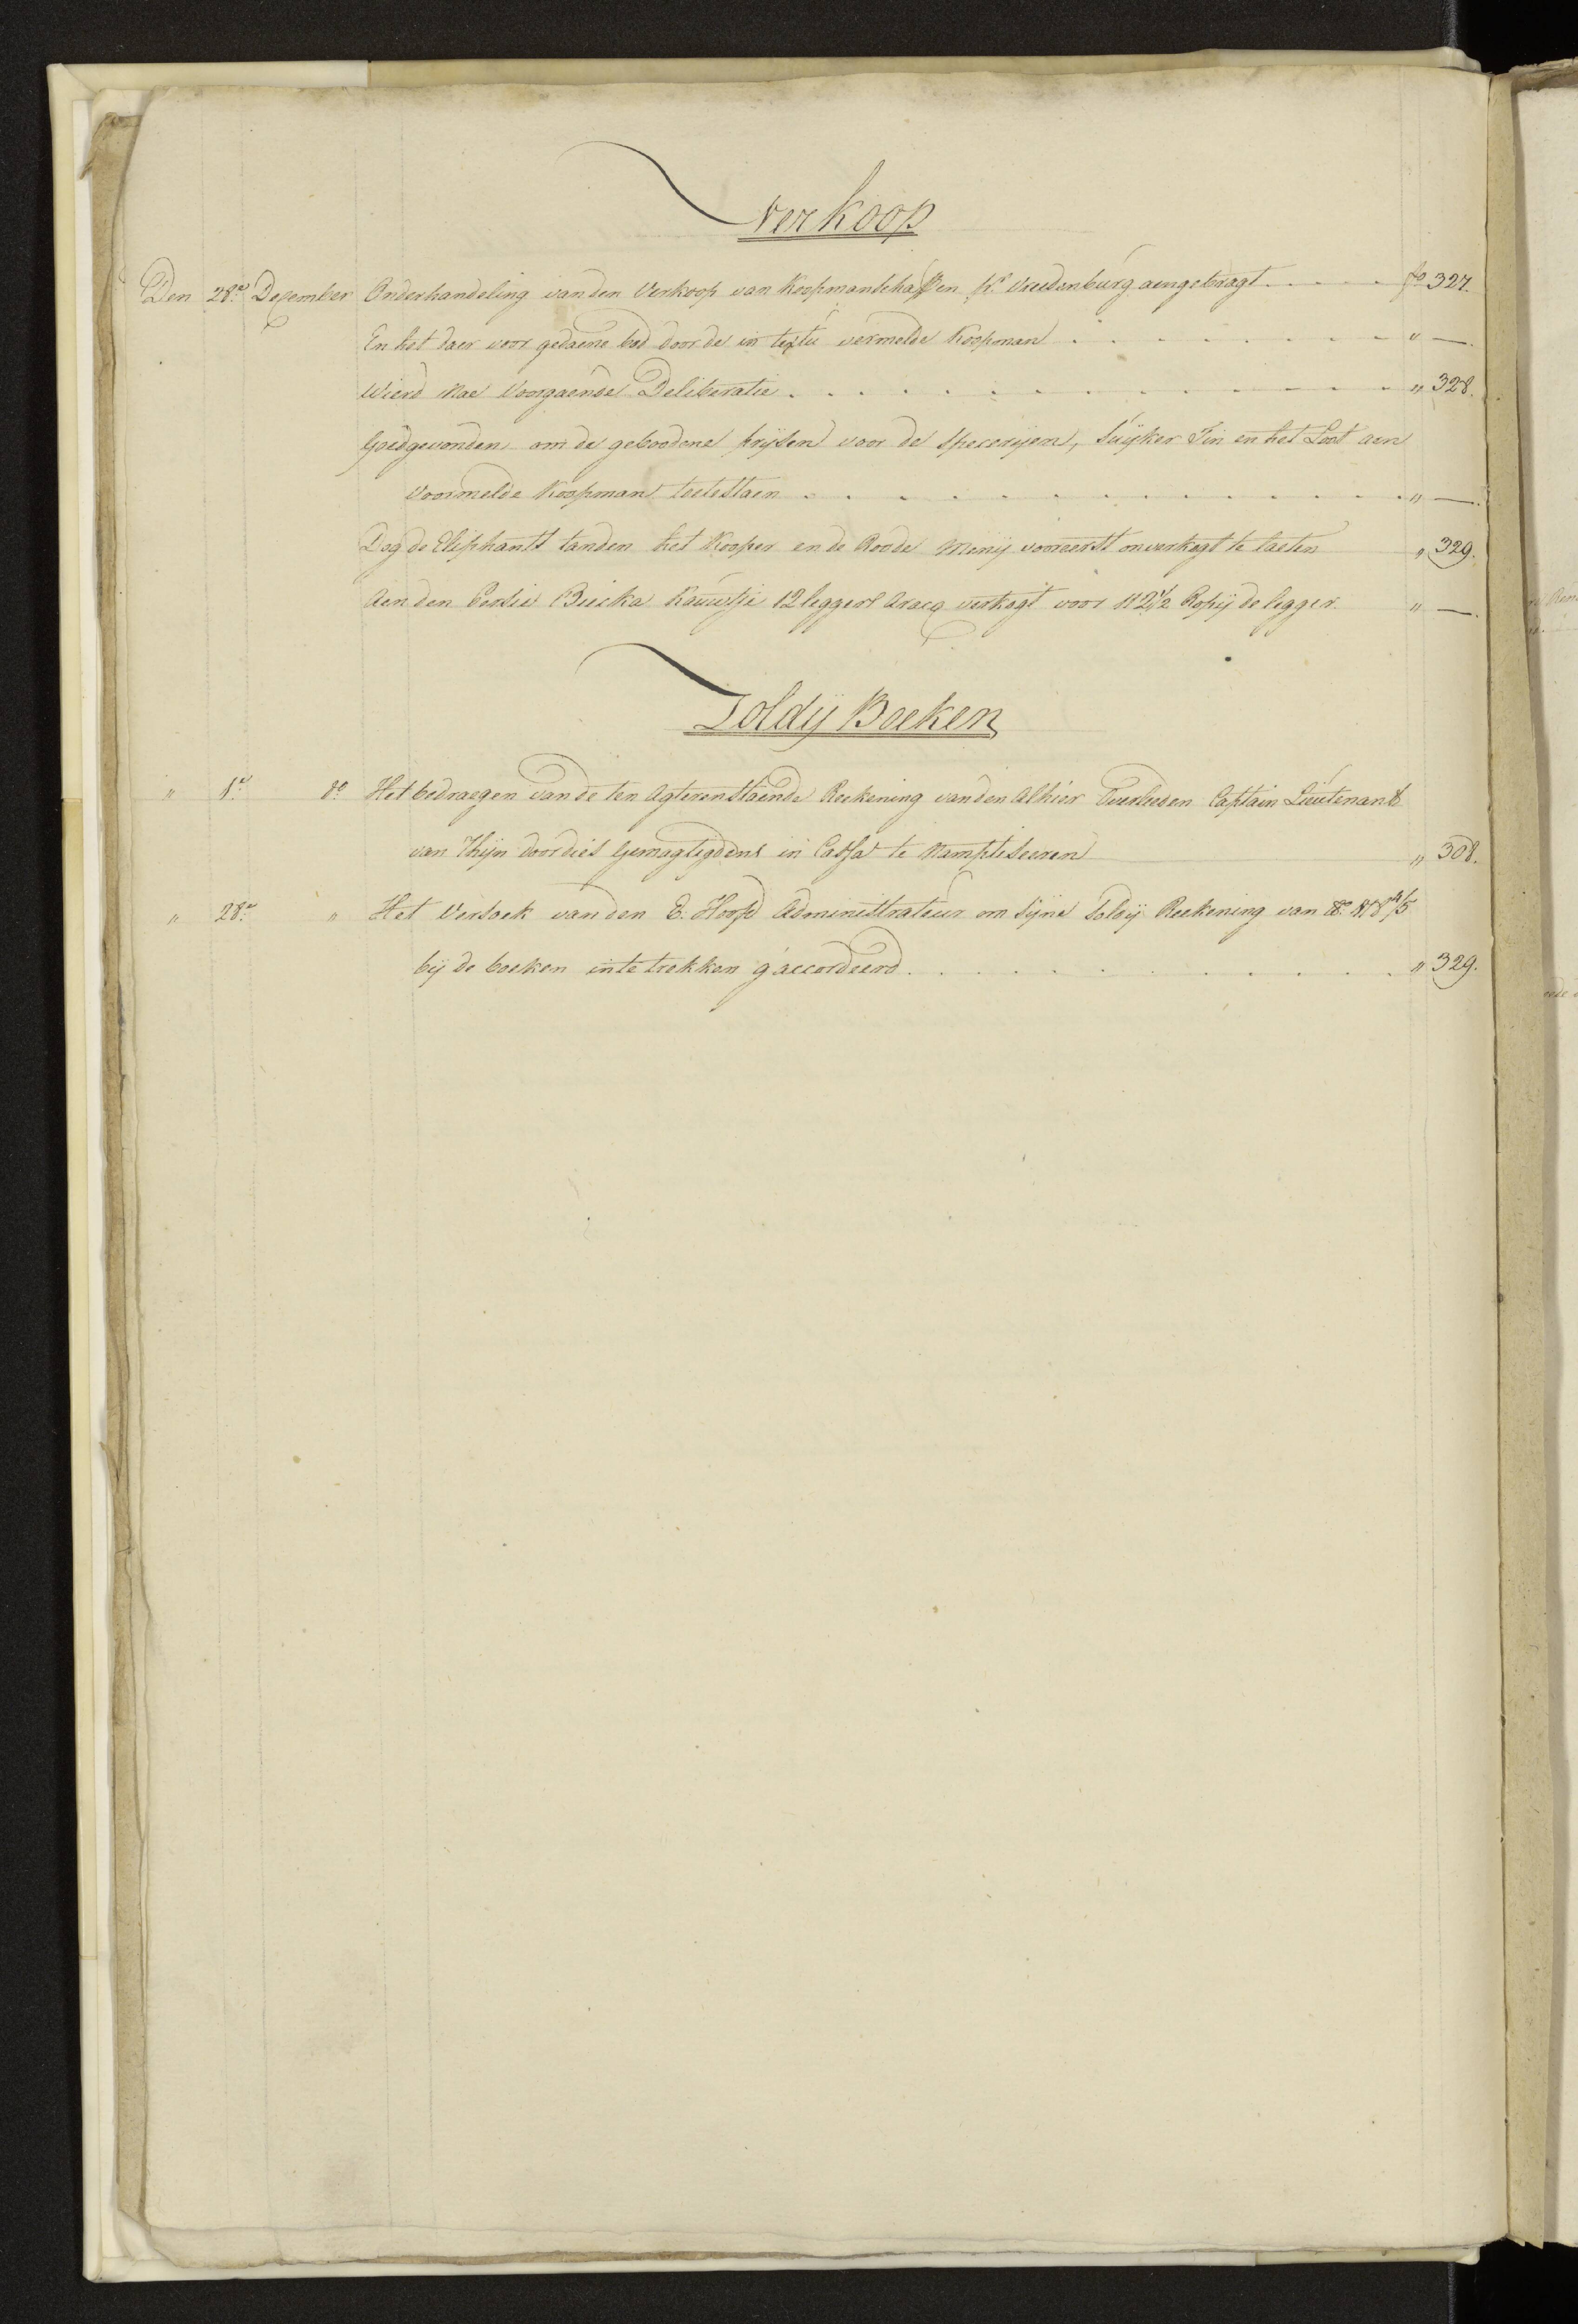 Verkoop
Den 28:en December Onderhandeling van den Verkoop van Koopmanschappen p:r Vreedenburg aengebragt . . . . . fo 327.
En het daer voor gedaene bod door de in textu vermelde Koopman . . . . . . . " —.
Wierd nae voorgaende Deliberatie . . . . . . . . . . . . " 328.
Goedgevonden om de geboodene prijsen voor de specerijen, Suijker Tin en het Loot aen
voormelde Koopman toetestaen . . . . . . . . . . . . " —.
Dog de Eliphants tanden het Kooper en de Roode Menij vooreerst onverkogt te laeten " 329.
Aen den Persie Biecka Kauwsje 12 leggers Aracq verkogt voor 112½ Ropij de legger. " —.
Soldij Boeken
" 1:en do Het bedraegen van de ten agterenstaende Reekening van den alhier Overleeden Captain Lieutenant
van Thijn door dies gemagtigdens in Cassa te Namptiseeren " 308.
" 28:en " Het Versoek van den E. Hoofd Administrateur om sijne Soldij Reekening van
bij de boeken inte trekken g'accordeerd . . . . . . . . . " 329.